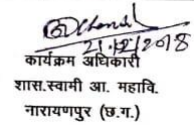 21/12/2018
कार्यक्रम अधिकारी
शास.स्वामी आ. महावि.
नारायणपुर (छ.ग.)